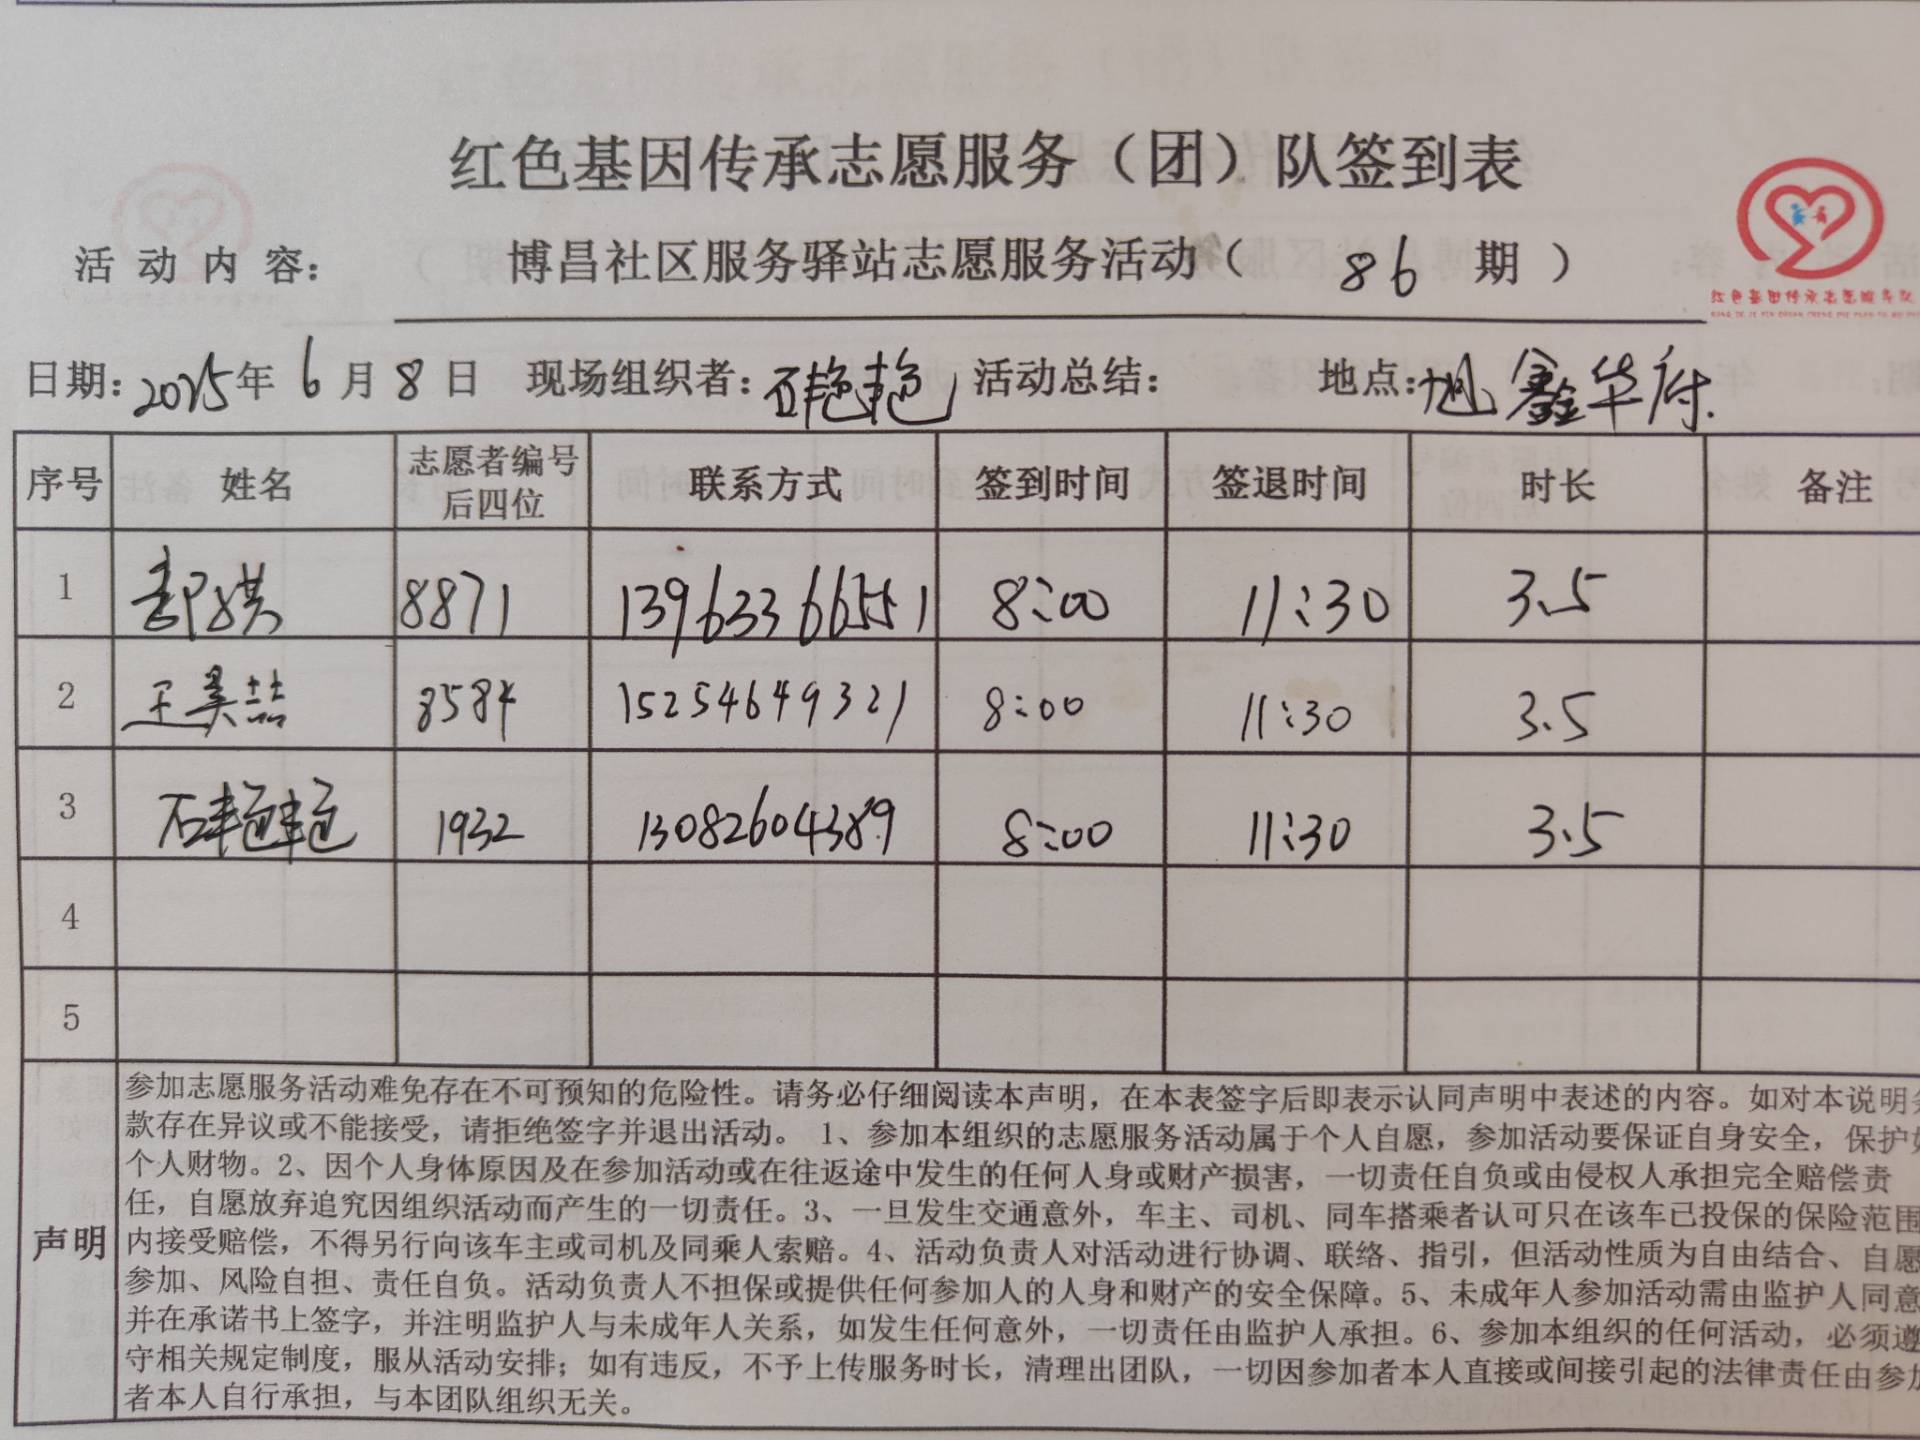 红色基因传承志愿服务（团）队签到表
活动内容： 博昌社区服务驿站志愿服务活动（ 86 期 ）
红色基因传承志愿服务队
日期：2025年 6 月 8 日 现场组织者：石艳艳 活动总结： 地点：旭鑫华府.
序号 姓名 志愿者编号后四位 联系方式 签到时间 签退时间 时长 备注
1 8871 13963366551 8:00 11:30 3.5
2 王昊喆 8584 15254649321 8:00 11:30 3.5
3 石艳艳 1932 13082604389 8:00 11:30 3.5
4
5
声明
参加志愿服务活动难免存在不可预知的危险性。请务必仔细阅读本声明，在本表签字后即表示认同声明中表述的内容。如对本说明条
款存在异议或不能接受，请拒绝签字并退出活动。 1、参加本组织的志愿服务活动属于个人自愿，参加活动要保证自身安全，保护好
个人财物。2、因个人身体原因及在参加活动或在往返途中发生的任何人身或财产损害，一切责任自负或由侵权人承担完全赔偿责
任，自愿放弃追究因组织活动而产生的一切责任。3、一旦发生交通意外，车主、司机、同车搭乘者认可只在该车已投保的保险范围
内接受赔偿，不得另行向该车主或司机及同乘人索赔。4、活动负责人对活动进行协调、联络、指引，但活动性质为自由结合、自愿
参加、风险自担、责任自负。活动负责人不担保或提供任何参加人的人身和财产的安全保障。5、未成年人参加活动需由监护人同意
并在承诺书上签字，并注明监护人与未成年人关系，如发生任何意外，一切责任由监护人承担。6、参加本组织的任何活动，必须遵
守相关规定制度，服从活动安排；如有违反，不予上传服务时长，清理出团队，一切因参加者本人直接或间接引起的法律责任由参加
者本人自行承担，与本团队组织无关。